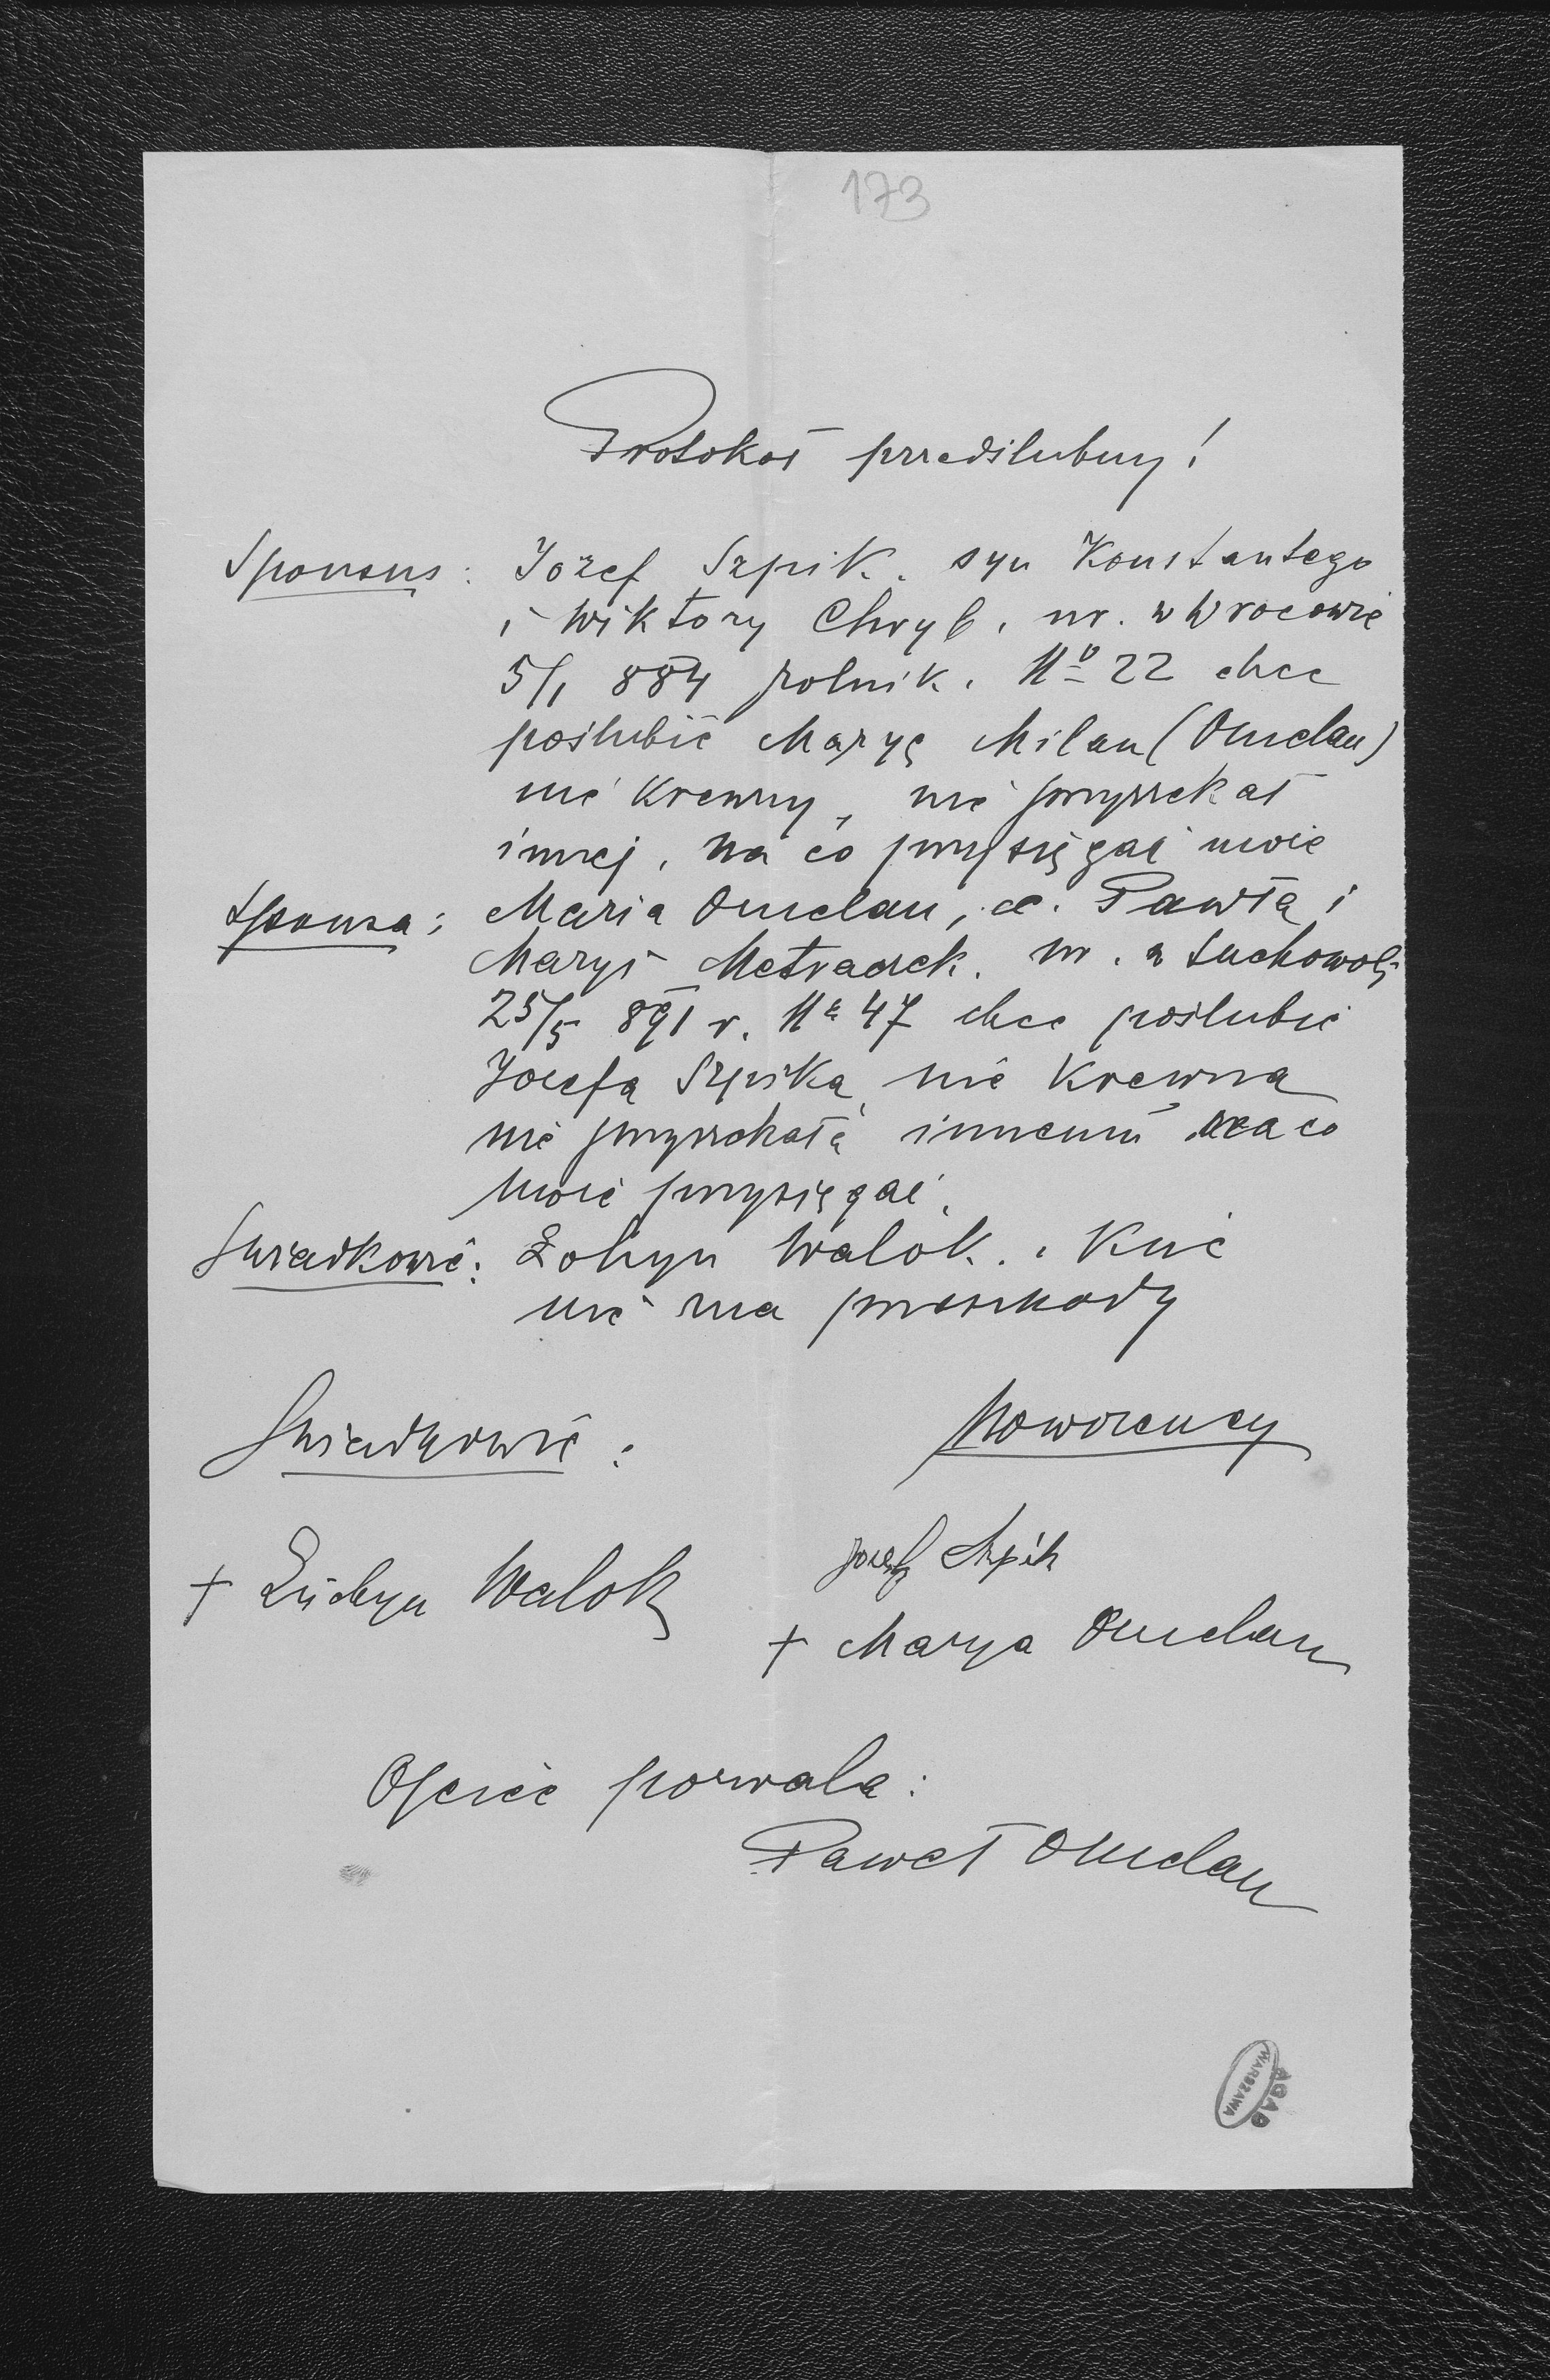 173
Protokoł przedślubny!
Sponsus: Józef Szpik. syn Konstantego
i Wiktory Chryb. ur. w Wrocowie
5/1 884 rolnik. No 22 chce
poślubić Maryę Milan (Omelan)
nie krewny, nie przyrzekał
innej, na co przysięgać może
Sponsa: Maria Omelan, c. Pawła i
Maryi . ur. w Suchowoli
25/5 891 r. No 47 chce poślubić
Józefa Szpika, nie krewna
nie przyrzekała innemu na co
może przysięgać.
Świadkowie: Walok. i Kuc
nie ma przeszkody
Świadkowie: Nowożeńcy
Józef Szpik
+ Walok
+ Marya Omelan
Ojciec pozwala:
Paweł Omelan
AGAD
WARSZAWA